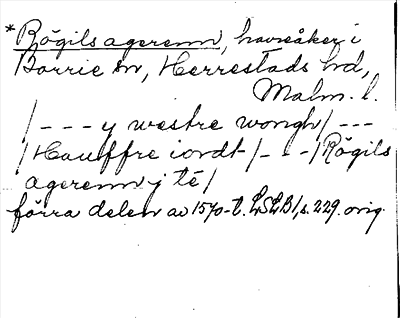 *Rögils agerenn, havreåker i
Borrie sn, Herrestads hd,
Malm. l.
/--- y westre wongh/---
/Hauffre iordt/---/Rögils
agerenn j tē/
förra delen av 1570-t. LSLB1, s. 229. orig.